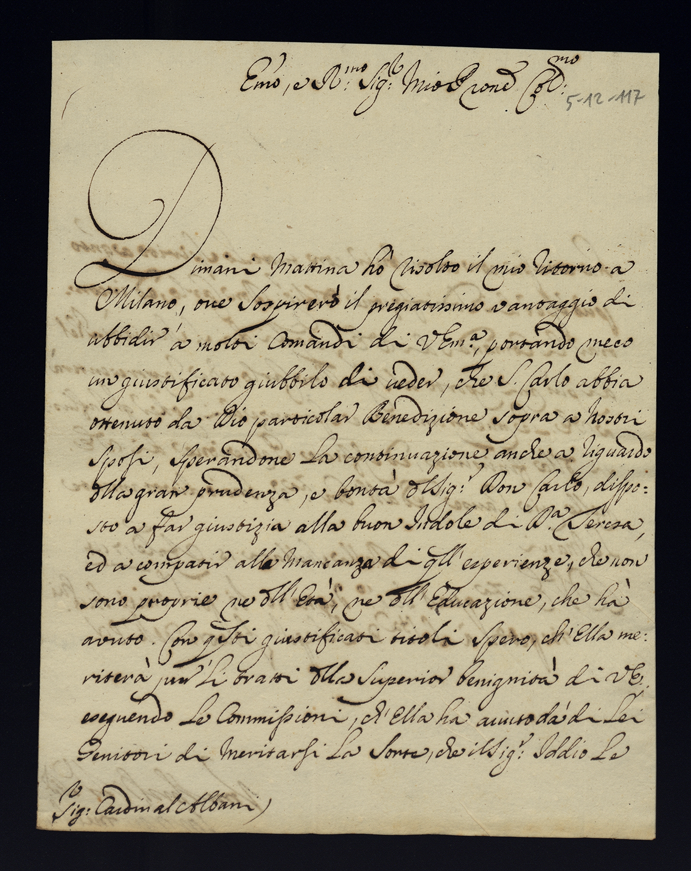 Emo, e Rmo Sigr: Mio Prone Colmo:
5-12-117
Dimani Mattina hò risolto il mio ritorno a
Milano, ove sospirerò il pregiatissimo vantaggio di
abbidir à molti Comandi di VEma, portando meco
un giustificato giubbilo di veder, che S. Carlo abbia
ottenuto da Dio particolar Benedizione sopra a nostri
Sposi, sperandone la continuazione anche a riguardo
dlla gran prudenza, e bontà dl Sigr: Don Carlo, dispo:
sto a far giustizia alla buon Indole di Da. Teresa,
ed a compatir alle Mancanze di qll' esperienze, che non
sono proprie ne dll' Età, ne dll' Educazione, che hà
avuto. Con qsti giustificati titoli spero, ch' Ella me:
riterà li tratti dlla Superior benignità di VE:
eseguendo le Commissioni, ch' Ella ha avuto da di Lei
Genitori di Meritarsi la Sorte, che il Sigr: Iddio le
Sigr: Cardinal Albani)